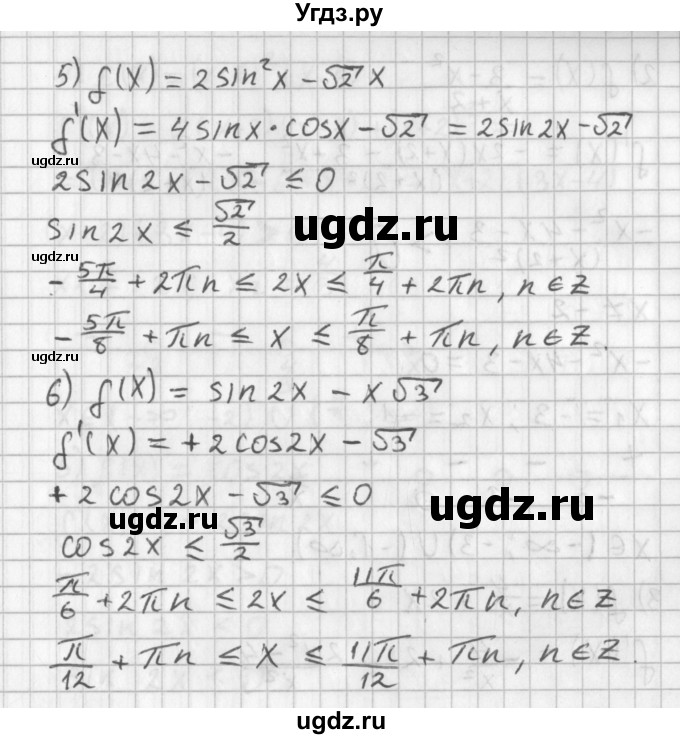 Угдз.ру
5) f(x) = 2sin²x − √2 x
f'(x) = 4sinx·cosx − √2 = 2sin2x − √2
ugdz.ru
2sin2x − √2 ≤ 0
ugdz.ru
sin2x ≤ √2/2
ugdz.ru
− 5π/4 + 2πn ≤ 2x ≤ π/4 + 2πn, n∈Z
− 5π/8 + πn ≤ x ≤ π/8 + πn, n∈Z.
ugdz.ru
6) f(x) = sin2x − x√3
f'(x) = + 2cos2x − √3
+ 2cos2x − √3 ≤ 0
ugdz.ru
ugdz.ru
cos2x ≤ √3/2
π/6 + 2πn ≤ 2x ≤ 11π/6 + 2πn, n∈Z
π/12 + πn ≤ x ≤ 11π/12 + πn, n∈Z.
ugdz.ru